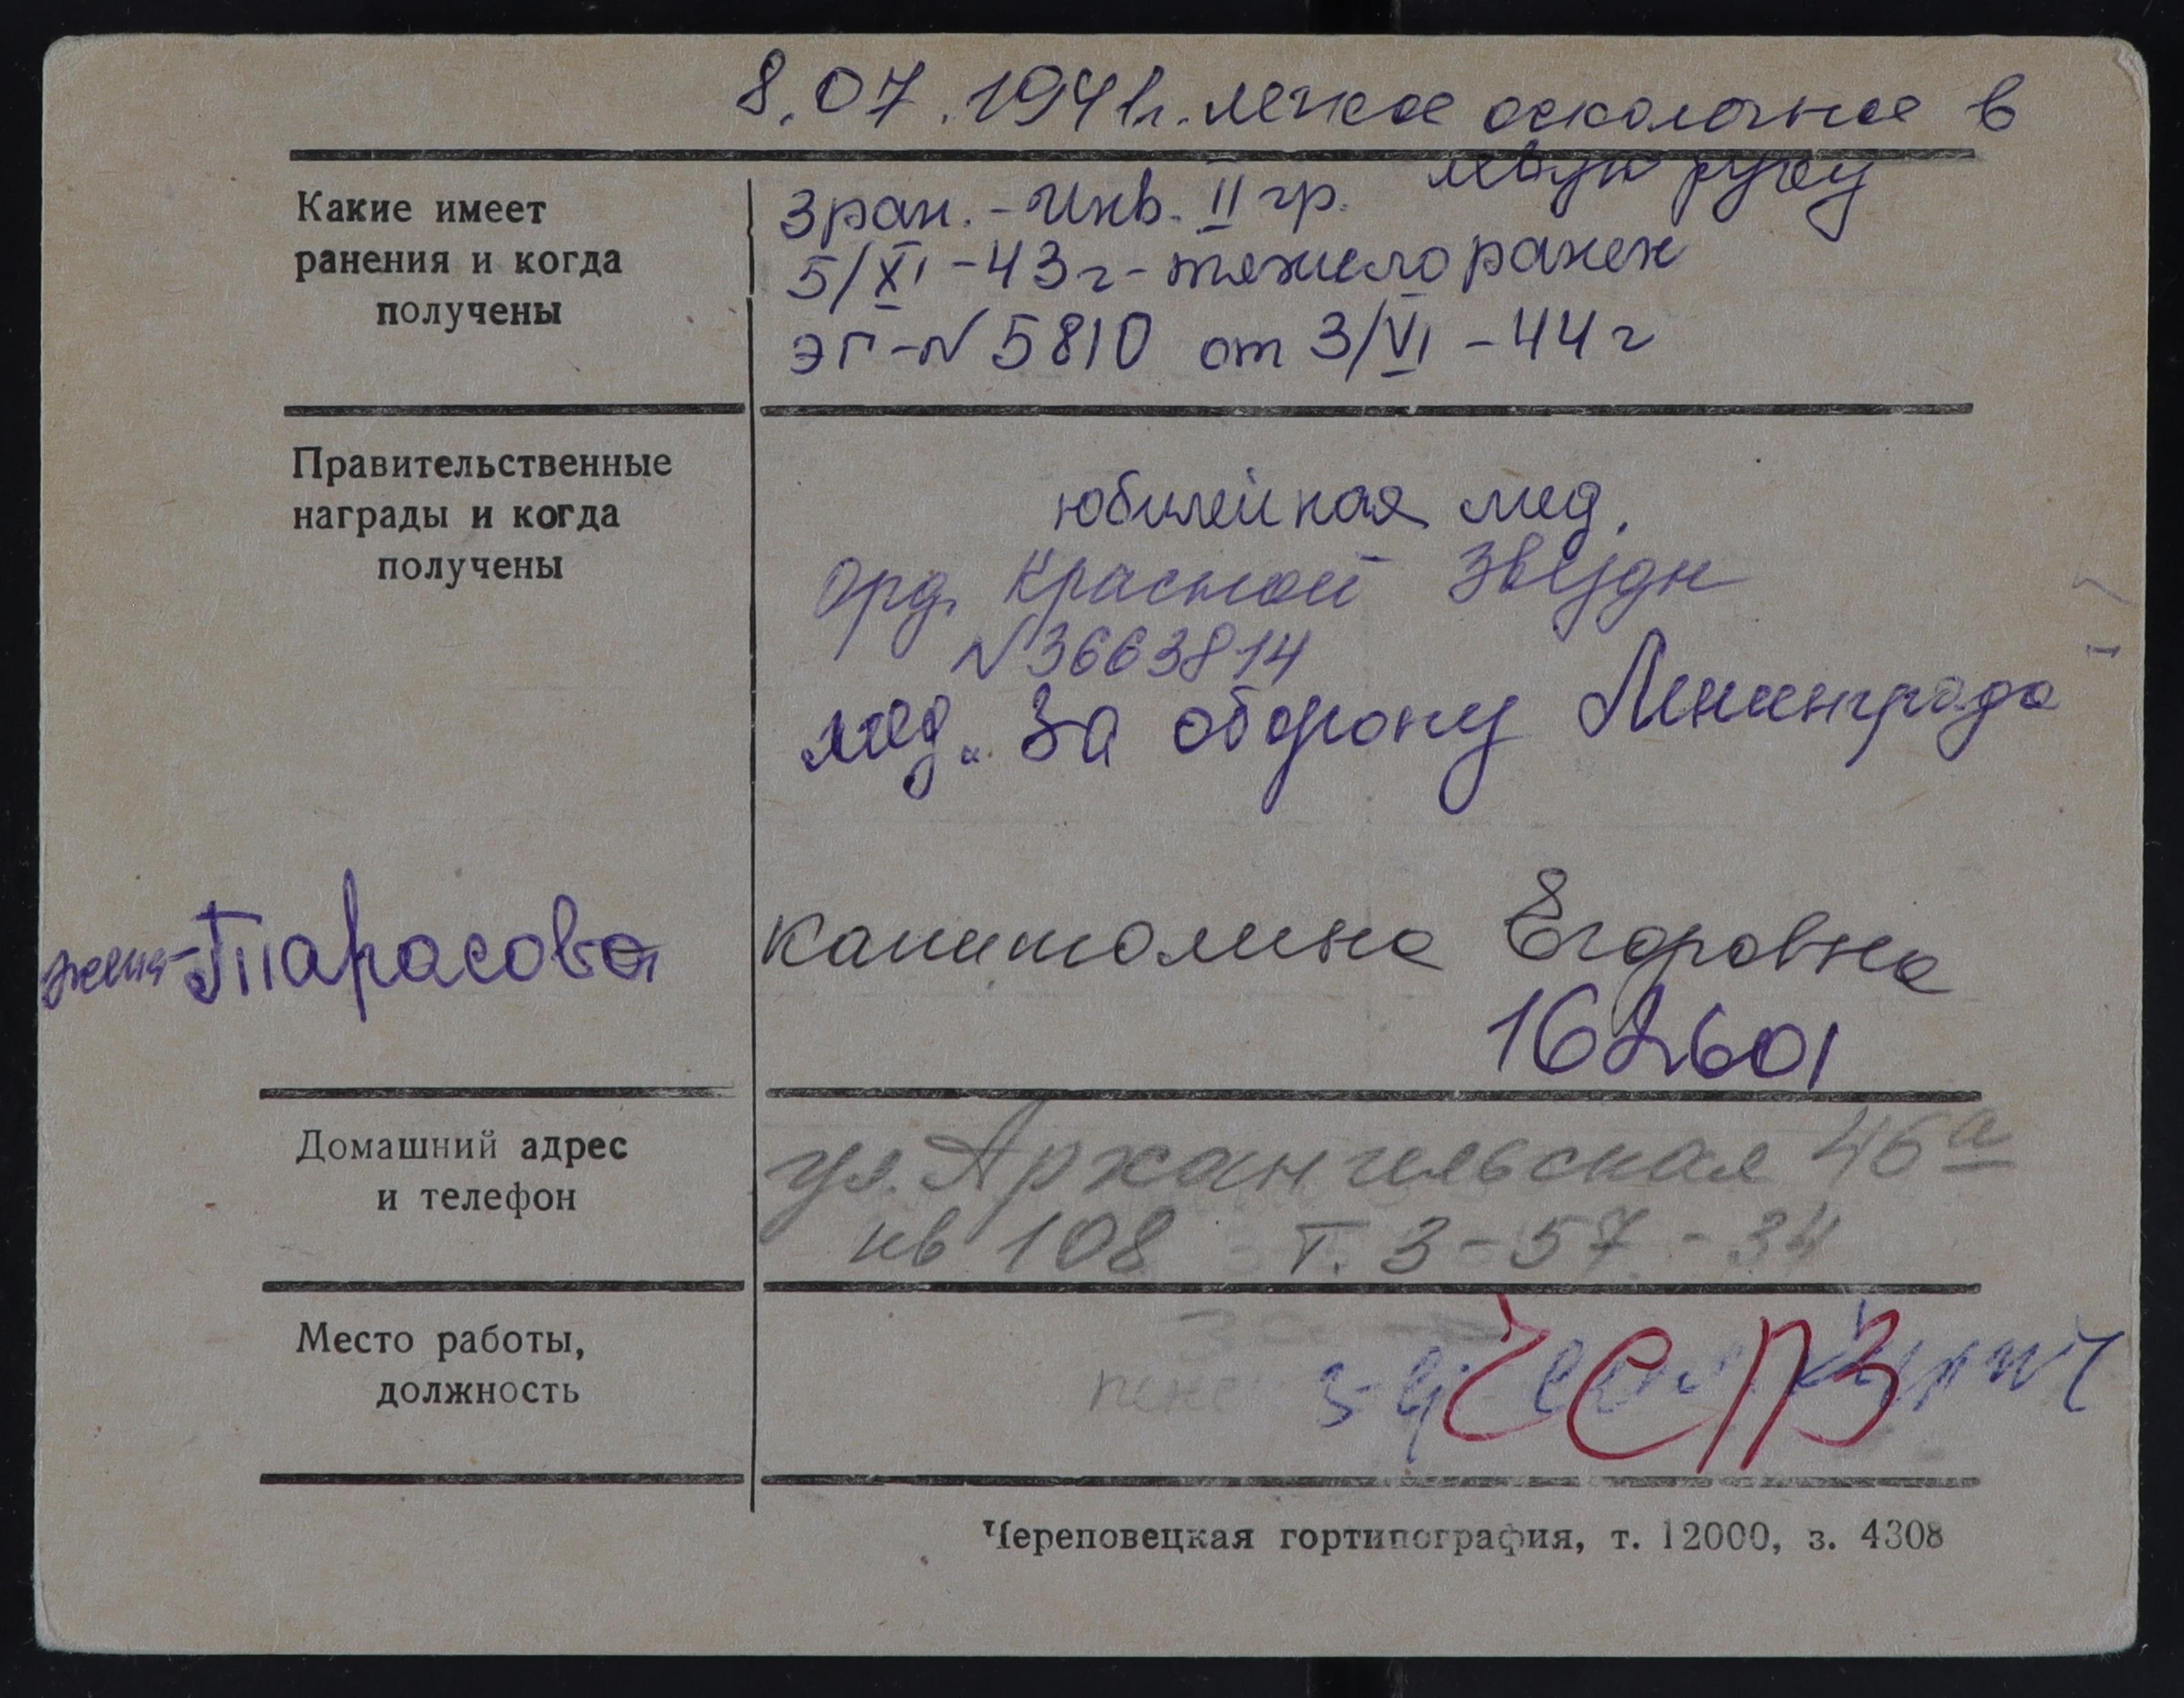 8.07.1941г. легкое осколочное в
левую руку
Какие имеет
ранения и когда
получены
3 ран. - Инв. II гр.
5/XI - 43 г - тяжело ранен
ЭГ - N 5810 от 3/VI - 44 г
Правительственные
награды и когда
получены
юбилейная мед.
Орд. Красной Звезды
N 3663814
мед. "За оборону Ленинграда"
жена - Тарасова Капитолина Егоровна
162601
Домашний адрес
и телефон
ул. Архангельская 46а
кв 108 т. 3-57-34
Место работы,
должность
ЧСПЗ
Череповецкая гортипография, т. 12000, з. 4308